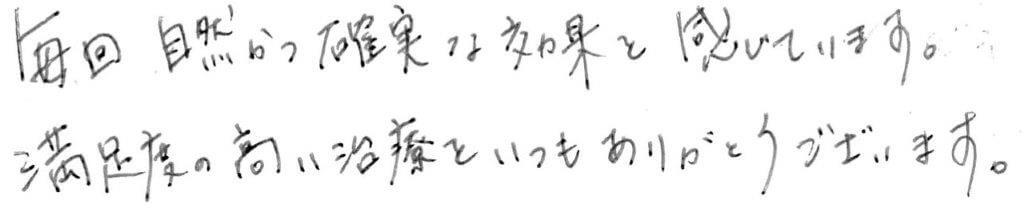 毎回 自然かつ確実な効果を感じています。
満足度の高い治療をいつもありがとうございます。